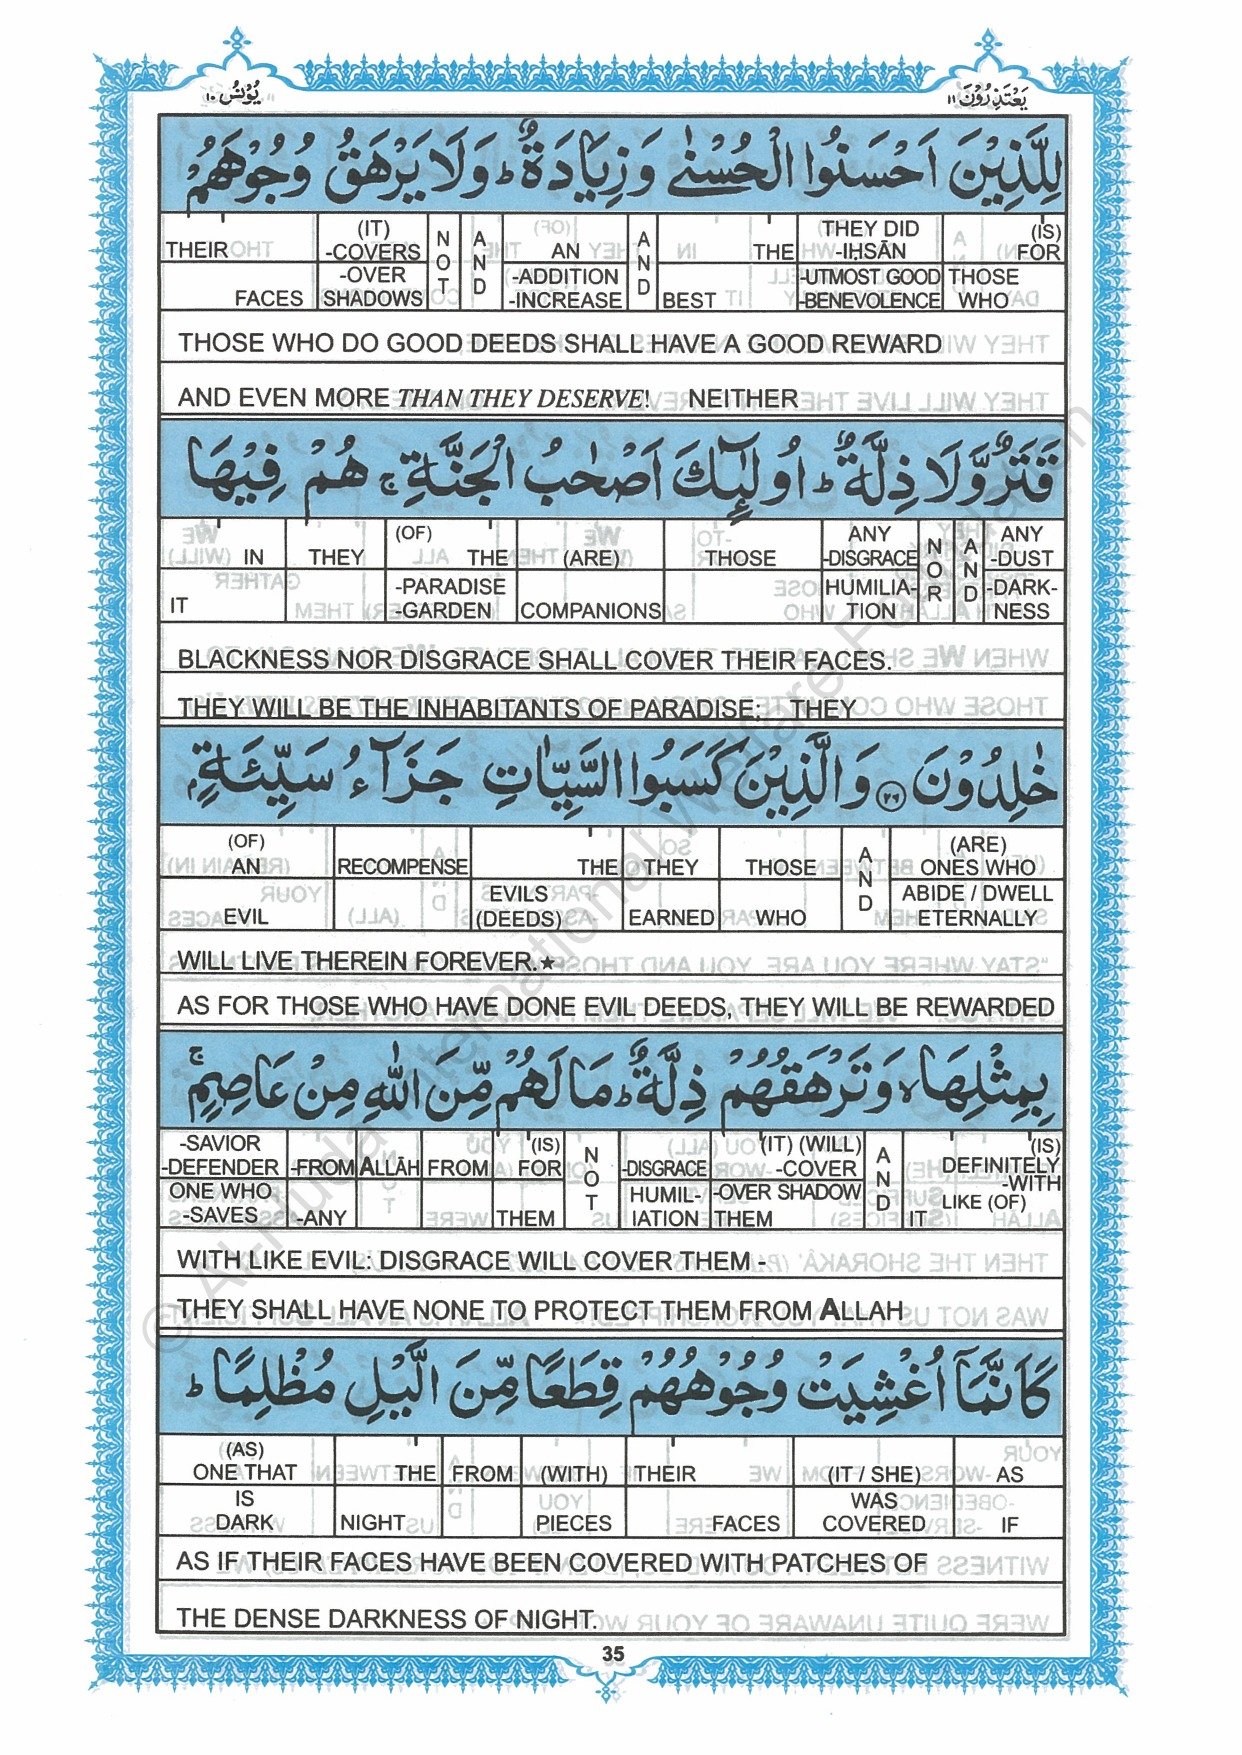 يَعْتَذِرُوْنَ ١١
يُوْنُسُ ١٠
لِلَّذِيْنَ اَحْسَنُوا الْحُسْنٰى وَ زِيَادَةٌ ؕ وَلَا يَرْهَقُ وُجُوْهَهُمْ
THEIR FACES | (IT) -COVERS -OVER SHADOWS | NOT | AND | AN -ADDITION -INCREASE | AND | THE BEST | THEY DID -IḤSĀN -UTMOST GOOD -BENEVOLENCE | (IS) FOR THOSE WHO
THOSE WHO DO GOOD DEEDS SHALL HAVE A GOOD REWARD
AND EVEN MORE THAN THEY DESERVE! NEITHER
قَتَرٌ وَّلَا ذِلَّةٌ ؕ اُولٰٓئِكَ اَصْحٰبُ الْجَنَّةِ ۚ هُمْ فِيْهَا
IN IT | THEY | (OF) THE -PARADISE -GARDEN | (ARE) COMPANIONS | THOSE | ANY -DISGRACE HUMILIA-TION | NOR | AND | ANY -DUST -DARK-NESS
BLACKNESS NOR DISGRACE SHALL COVER THEIR FACES.
THEY WILL BE THE INHABITANTS OF PARADISE: THEY
خٰلِدُوْنَ ﴿٢٦﴾ وَالَّذِيْنَ كَسَبُوا السَّيِّاٰتِ جَزَآءُ سَيِّئَةٍۭ
(OF) AN EVIL | RECOMPENSE | THE EVILS (DEEDS) | THEY EARNED | THOSE WHO | AND | (ARE) ONES WHO ABIDE / DWELL ETERNALLY
WILL LIVE THEREIN FOREVER.★
AS FOR THOSE WHO HAVE DONE EVIL DEEDS, THEY WILL BE REWARDED
بِمِثْلِهَا ۙ وَ تَرْهَقُهُمْ ذِلَّةٌ ؕ مَا لَهُمْ مِّنَ اللّٰهِ مِنْ عَاصِمٍ ۚ
-SAVIOR -DEFENDER ONE WHO -SAVES | -FROM -ANY | ALLĀH | FROM | (IS) FOR THEM | NOT | -DISGRACE HUMIL-IATION | (IT) (WILL) -COVER -OVER SHADOW THEM | AND | (IS) DEFINITELY -WITH LIKE (OF) IT
WITH LIKE EVIL: DISGRACE WILL COVER THEM -
THEY SHALL HAVE NONE TO PROTECT THEM FROM ALLAH
كَاَنَّمَاۤ اُغْشِيَتْ وُجُوْهُهُمْ قِطَعًا مِّنَ الَّيْلِ مُظْلِمًا ؕ
(AS) ONE THAT IS DARK | THE NIGHT | FROM | (WITH) PIECES | THEIR FACES | (IT / SHE) WAS COVERED | AS IF
AS IF THEIR FACES HAVE BEEN COVERED WITH PATCHES OF
THE DENSE DARKNESS OF NIGHT.
35
© Al-Huda International Welfare Foundation